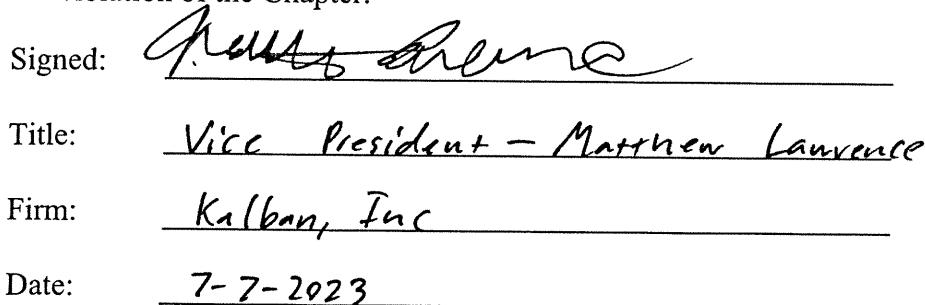 violation of the Chapter.
Signed:
Title: Vice President - Matthew Lawrence
Firm: Kalban, Inc
Date: 7-7-2023